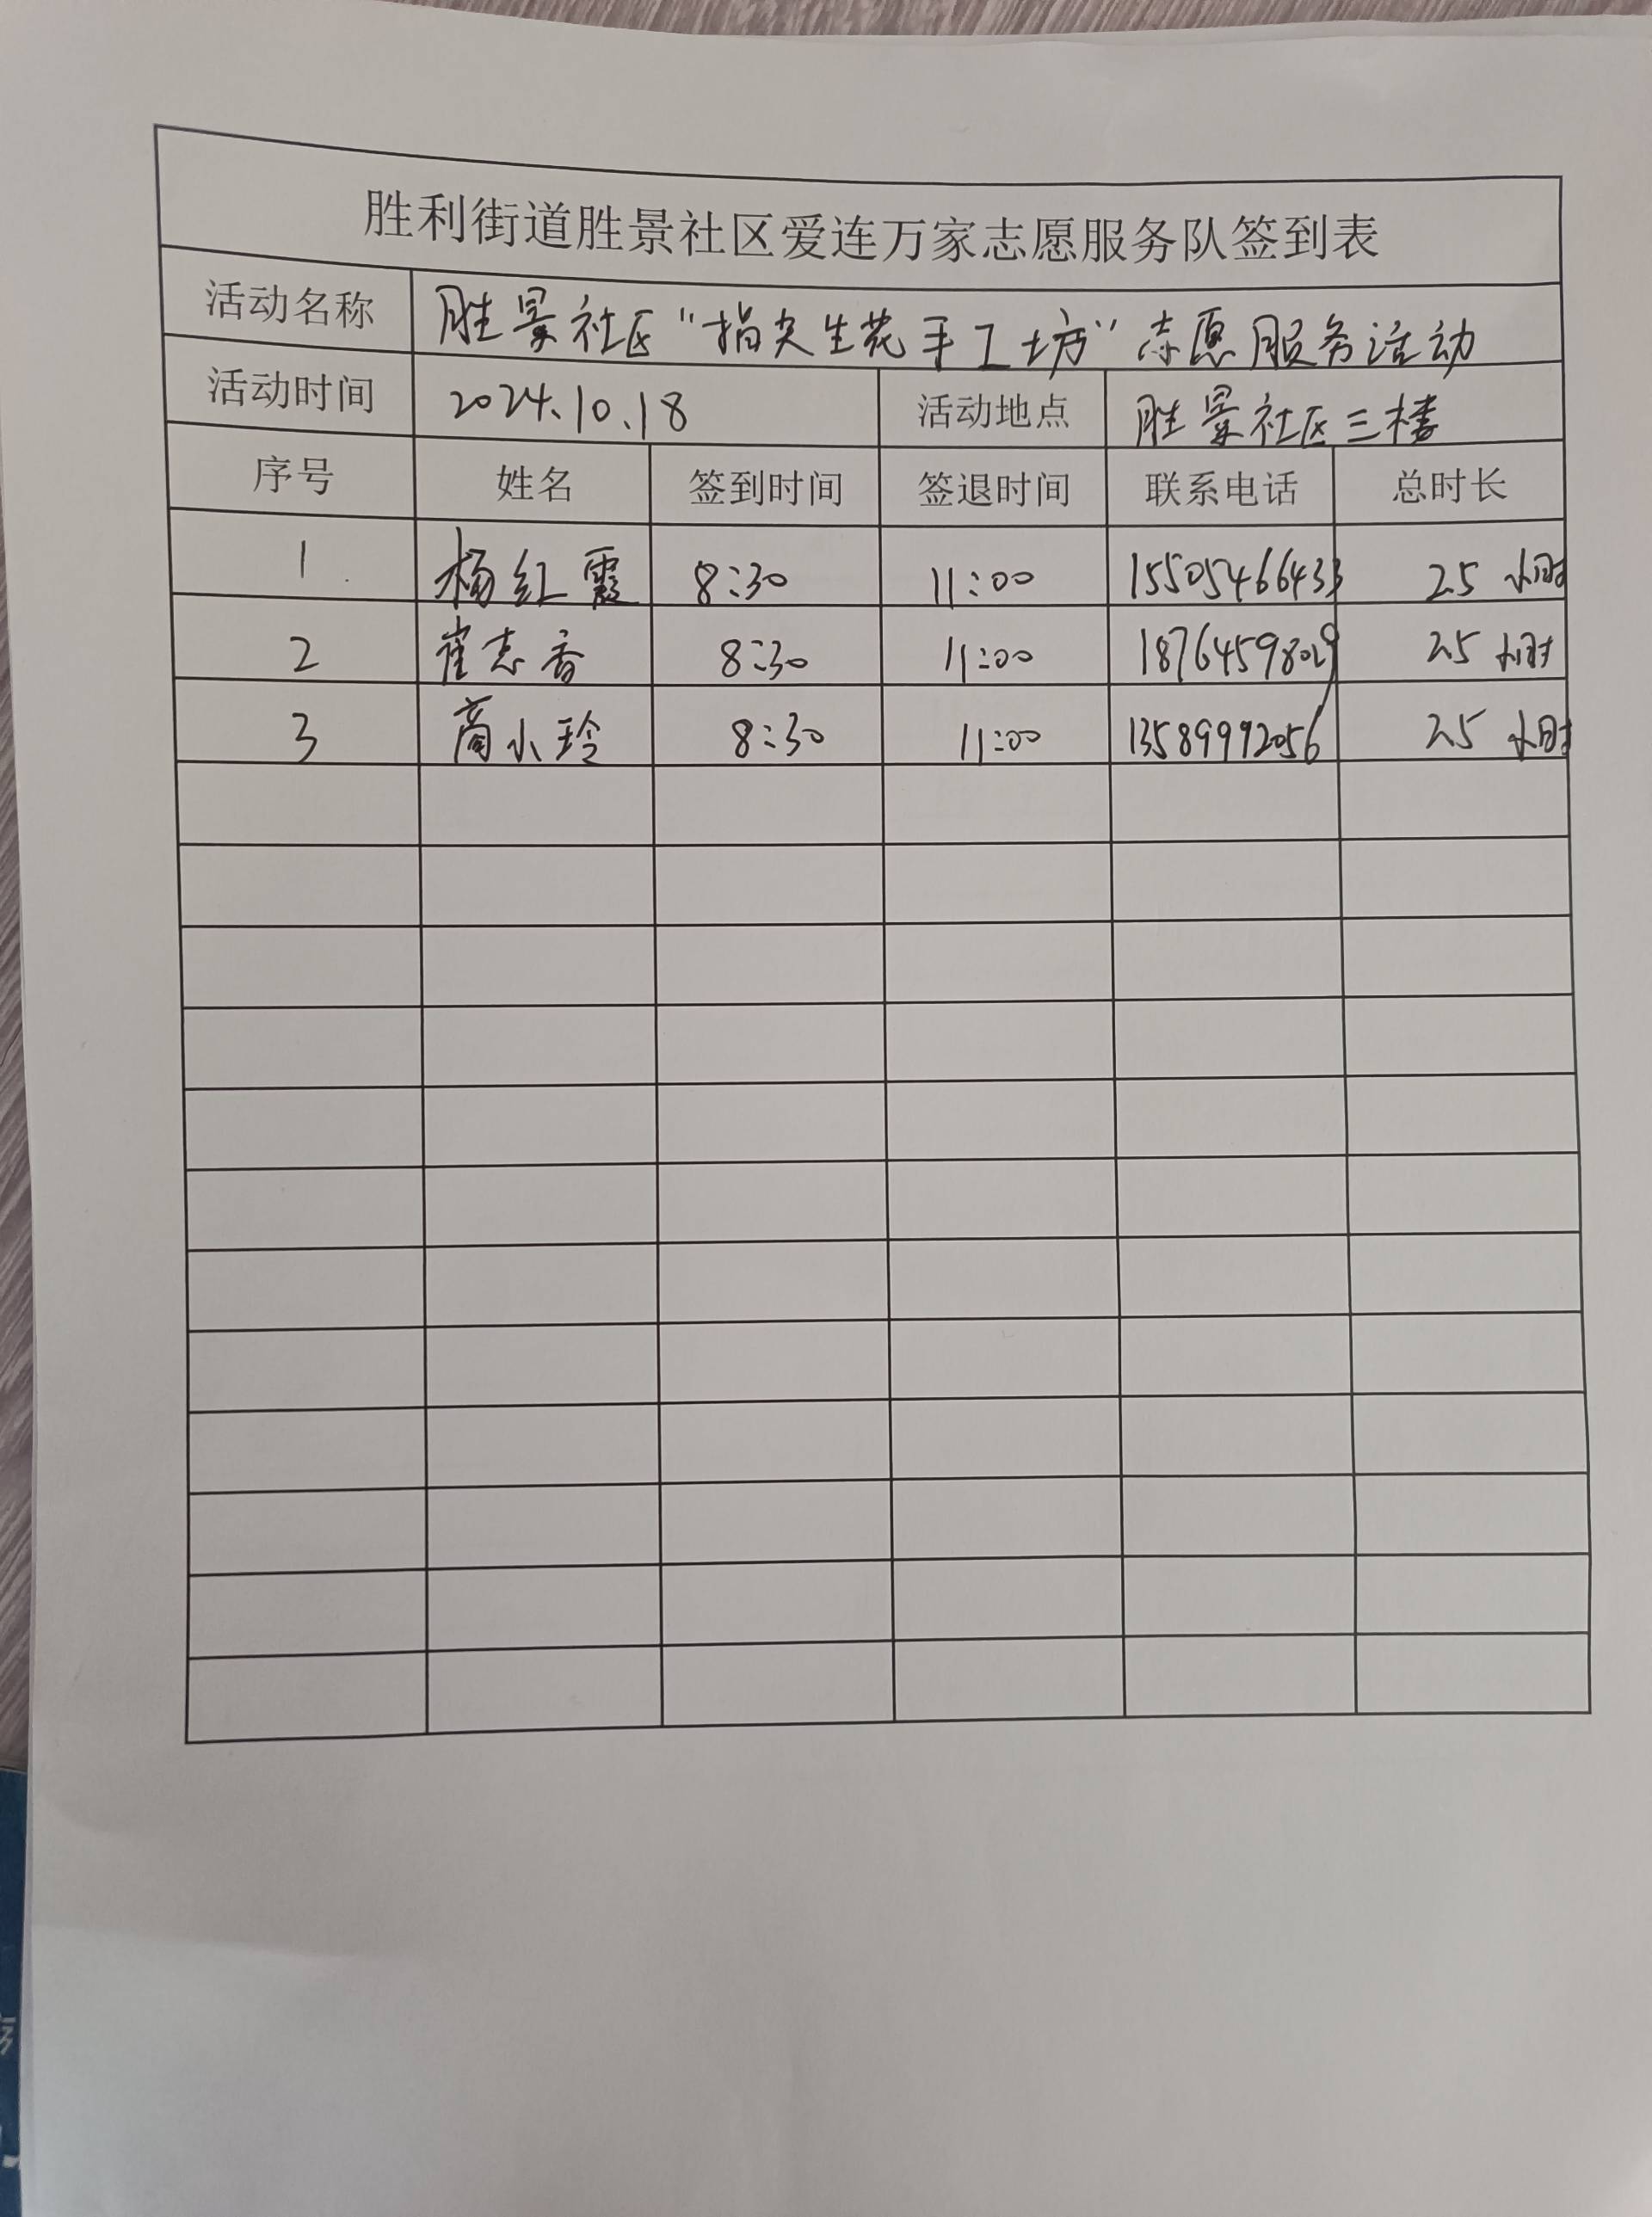 胜利街道胜景社区爱连万家志愿服务队签到表
活动名称 胜景社区“指尖生花手工坊”志愿服务活动
活动时间 2024.10.18 活动地点 胜景社区三楼
序号 姓名 签到时间 签退时间 联系电话 总时长
1 杨红霞 8:30 11:00 15505466433 2.5 小时
2 崔志香 8:30 11:00 18764598029 2.5 小时
3 商小玲 8:30 11:00 13589992056 2.5 小时